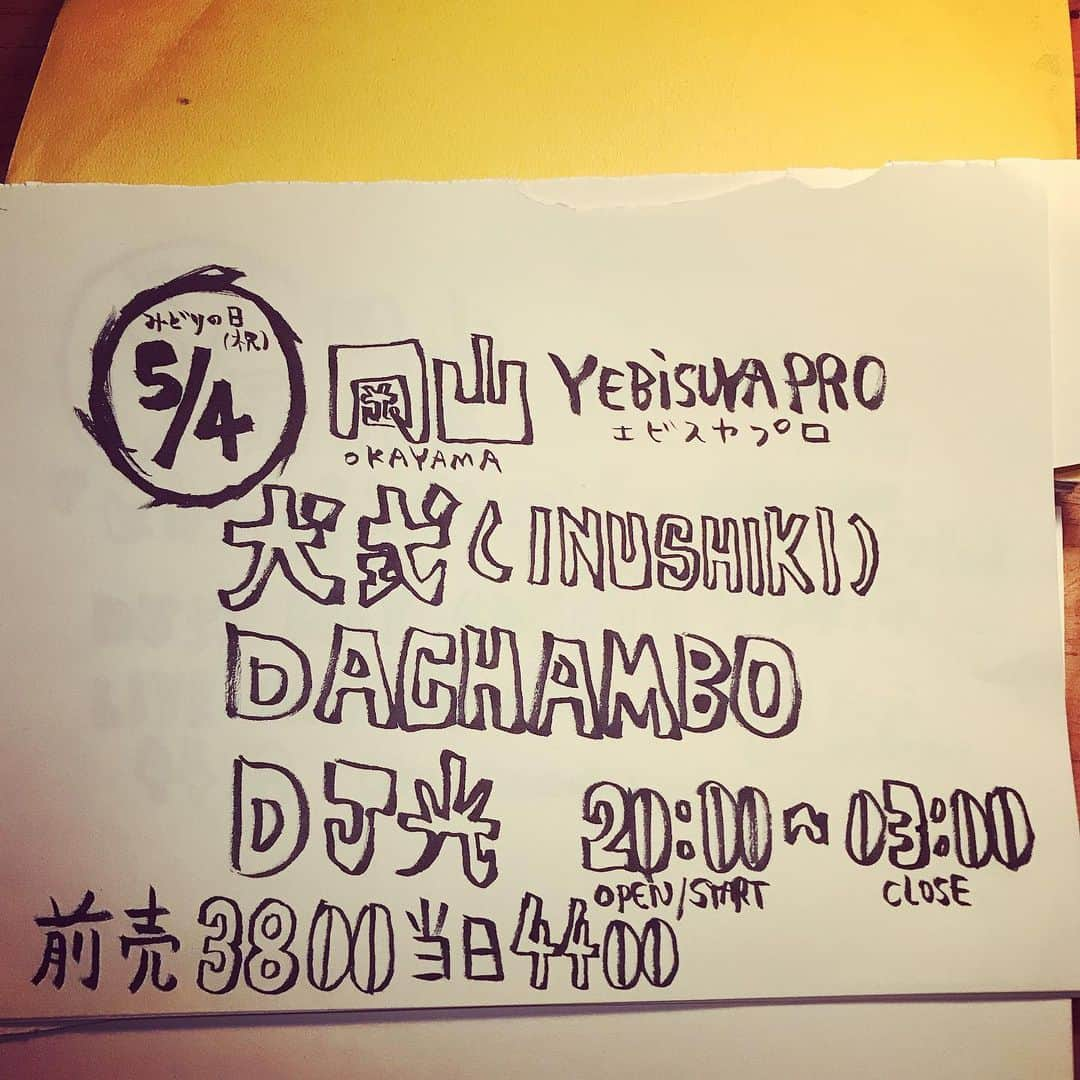 みどりの日
(祝)
5/4
岡山 YEBISUYA PRO
OKAYAMA エビスヤプロ
犬式 (INUSHIKI)
DACHAMBO
DJ光 20:00~03:00
OPEN/START CLOSE
前売3800当日4400